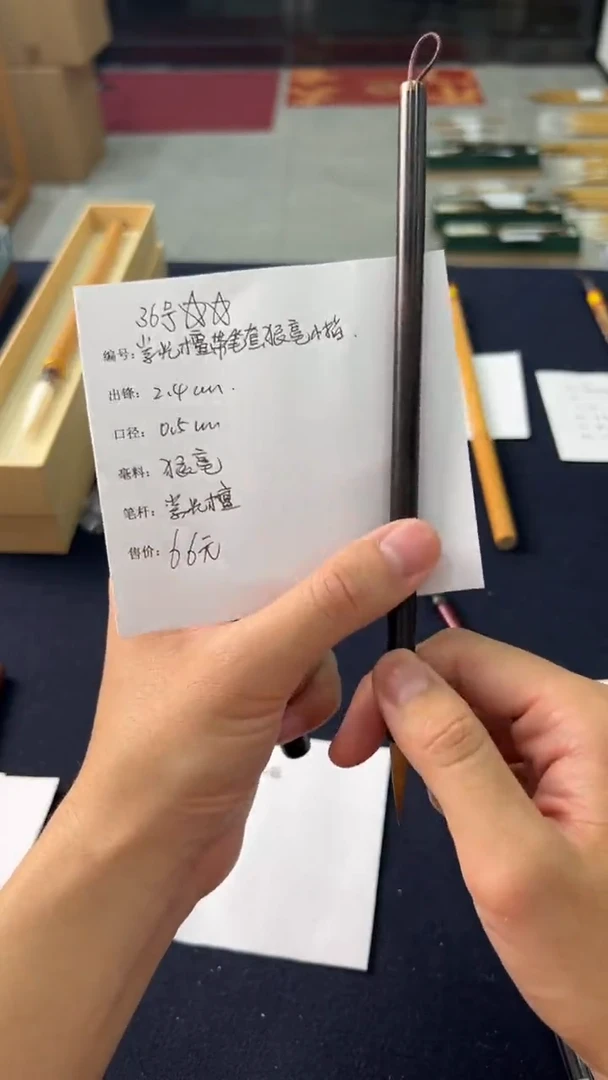 36号☆☆
编号：紫光檀带笔套狼毫小楷.
出锋：2.4cm.
口径：0.5cm
毫料：狼毫
笔杆：紫光檀
售价：66元